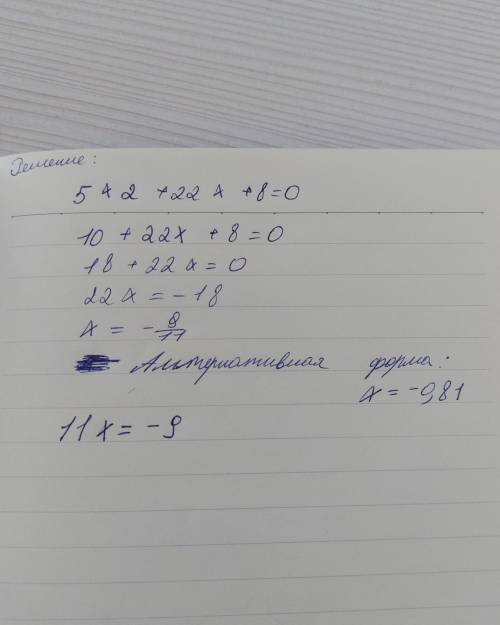 Решение:
5 × 2 + 22 x + 8 = 0
10 + 22x + 8 = 0
18 + 22 x = 0
22 x = - 18
x = - 9/11
Альтернативная форма:
x = -981
11 x = - 9